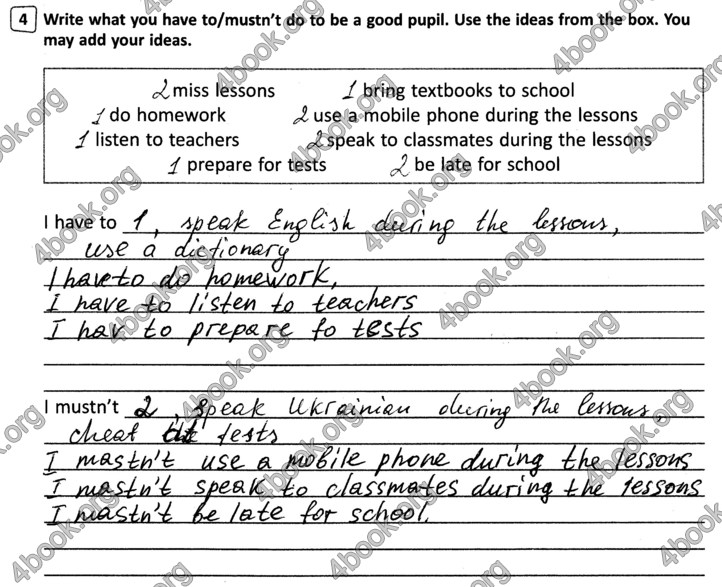 4 Write what you have to/mustn't do to be a good pupil. Use the ideas from the box. You
may add your ideas.
2 miss lessons 1 bring textbooks to school
1 do homework 2 use a mobile phone during the lessons
1 listen to teachers 2 speak to classmates during the lessons
1 prepare for tests 2 be late for school
I have to 1, speak English during the lessons,
use a dictionary
I have to do homework,
I have to listen to teachers
I hav to prepare fo tests
I mustn't 2, speak Ukrainian during the lessons,
cheat tests
I mastn't use a mobile phone during the lessons
I mastn't speak to classmates during the lessons
I mastn't be late for school.
4book.org